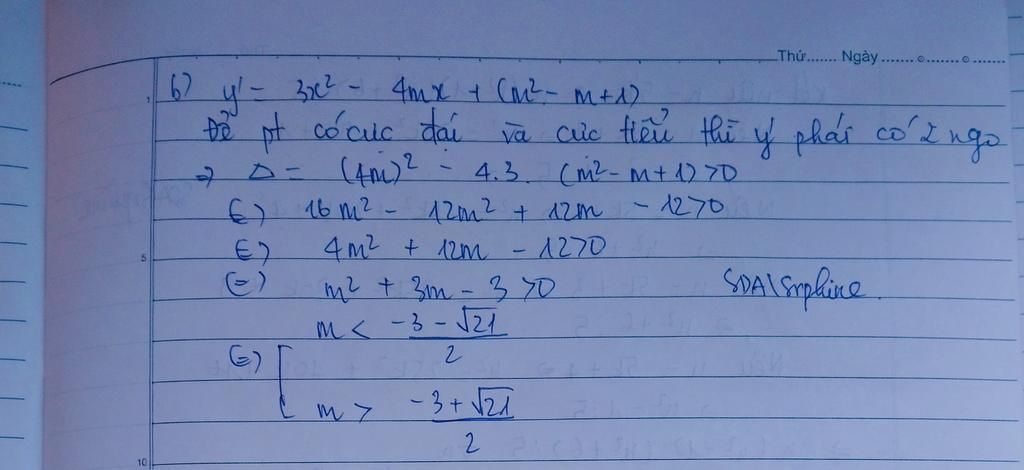 Thứ....... Ngày ....... o ....... o .......
1
b) y' = 3x² - 4mx + (m² - m + 1)
Để pt có cực đại và cực tiểu thì y' phải có 2 ngo
⇒ Δ = (4m)² - 4.3. (m² - m + 1) > 0
(=) 16m² - 12m² + 12m - 12 > 0
5
(=) 4m² + 12m - 12 > 0
(=) m² + 3m - 3 > 0
m < (-3 - √21)/2
(=) [
m > (-3 + √21)/2
10